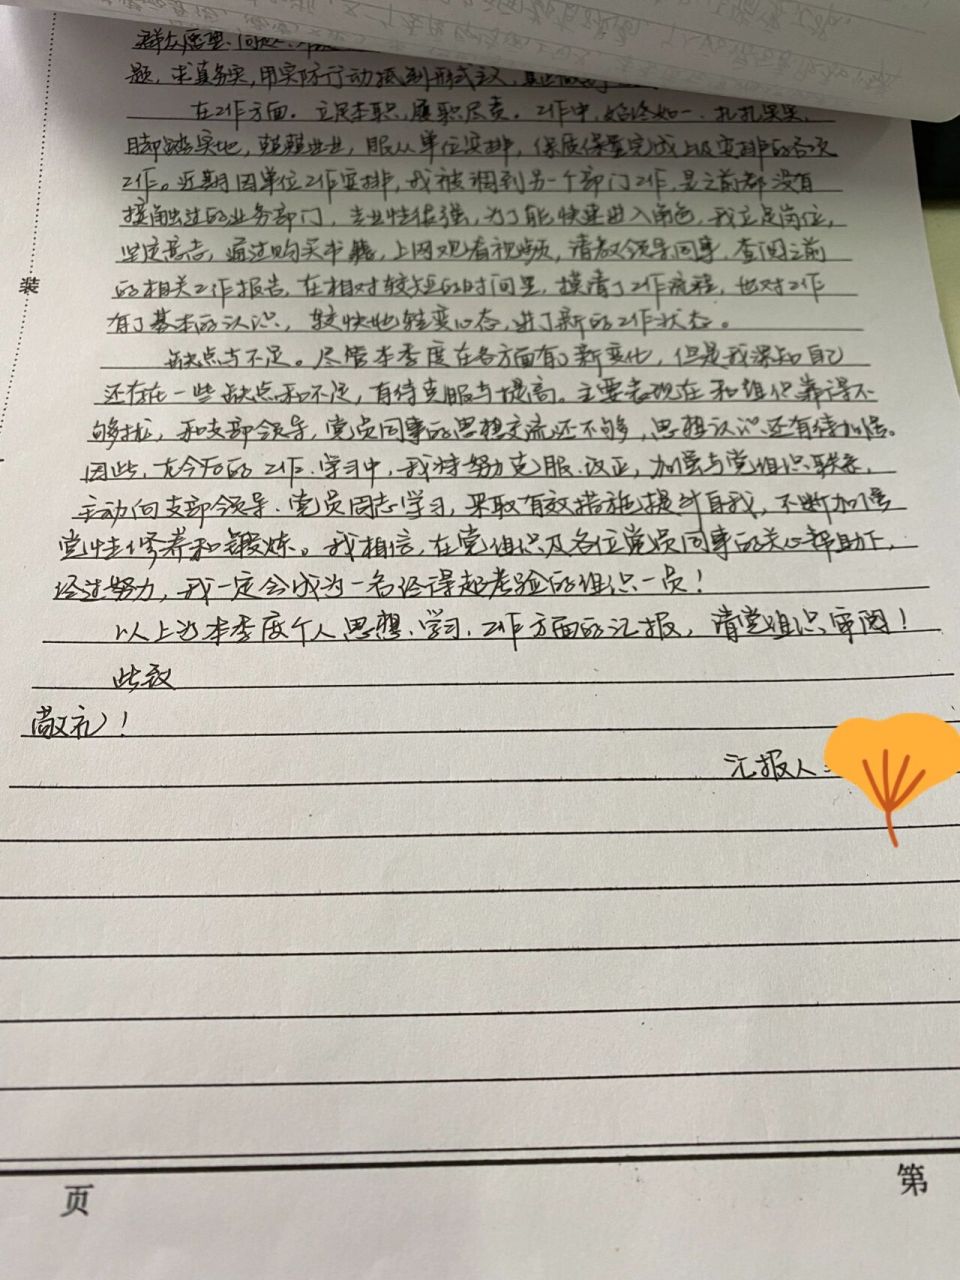 群众愿望、
题，求真务实，用实际行动抵制形式主义，真正做
在工作方面。立足本职，履职尽责。工作中，始终如一、扎扎实实、
脚踏实地，兢兢业业，服从单位安排，保质保量完成上级安排的各次
工作。近期因单位工作安排，我被调到另一个部门工作，是之前都没有
接触过的业务部门，专业性很强，为了能快速进入角色，我立足岗位，
坚定意志，通过购买书籍，上网观看视频，请教领导同事，查阅之前
的相关工作报告，在相对较短的时间里，摸清了工作流程，也对工作
有了基本的认识，较快地转变心态，进了新的工作状态。
缺点与不足。尽管本季度在各方面有了新变化，但是我深知自己
还存在一些缺点和不足，有待克服与提高。主要表现在和组织靠得不
够拢，和支部领导，党员同事的思想交流还不够，思想认识还有待加强。
因此，在今后的工作、学习中，我将努力克服、改正，加强与党组织联系，
主动向支部领导、党员同志学习，采取有效措施提升自我，不断加强
党性修养和锻炼。我相信，在党组织及各位党员同事的关心帮助下，
经过努力，我一定会成为一名经得起考验的组织一员！
以上为本季度个人思想、学习、工作方面的汇报，请党组织审阅！
此致
敬礼！
汇报人：
装
页
第